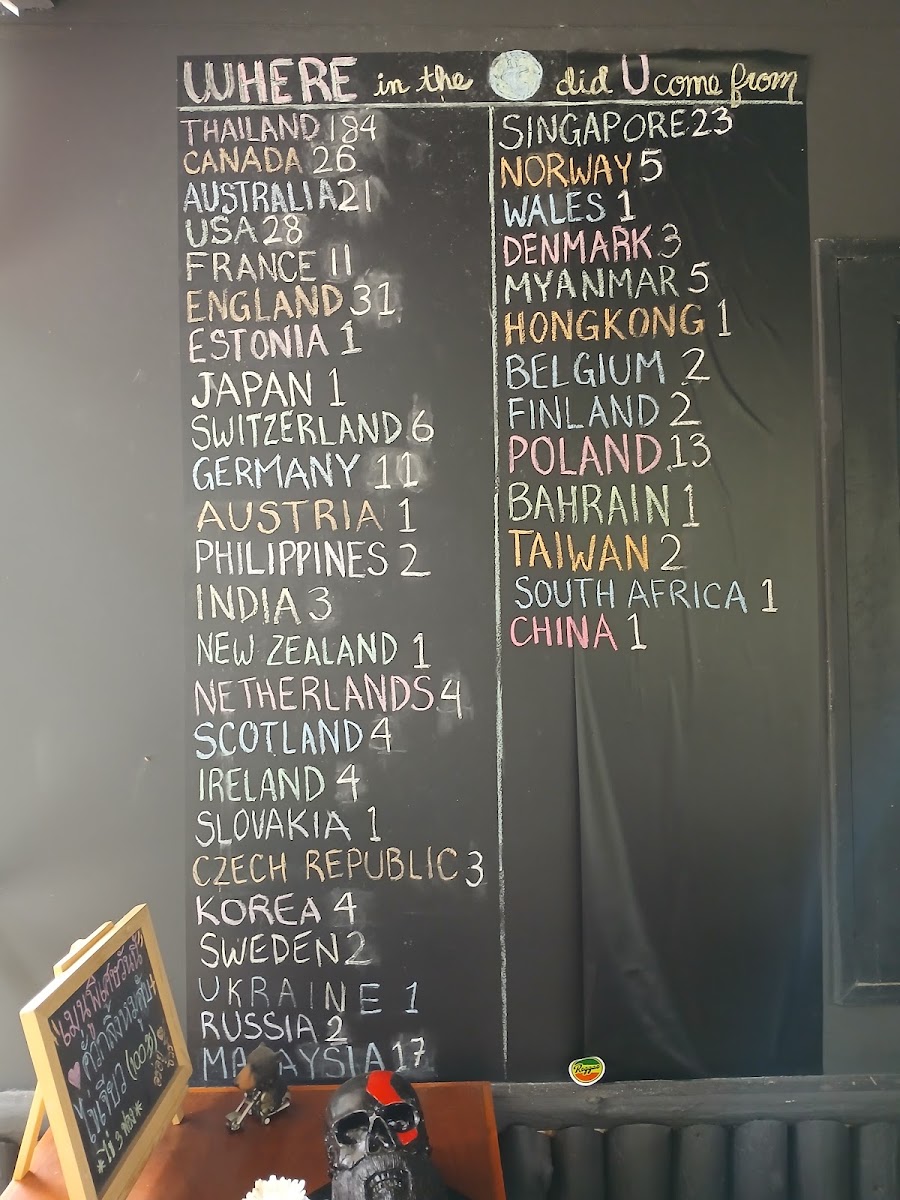 WHERE in the did U come from
THAILAND 184
CANADA 26
AUSTRALIA 21
USA 28
FRANCE 11
ENGLAND 31
ESTONIA 1
JAPAN 1
SWITZERLAND 6
GERMANY 11
AUSTRIA 1
PHILIPPINES 2
INDIA 3
NEW ZEALAND 1
NETHERLANDS 4
SCOTLAND 4
IRELAND 4
SLOVAKIA 1
CZECH REPUBLIC 3
KOREA 4
SWEDEN 2
UKRAINE 1
RUSSIA 2
MALAYSIA 17
SINGAPORE 23
NORWAY 5
WALES 1
DENMARK 3
MYANMAR 5
HONGKONG 1
BELGIUM 2
FINLAND 2
POLAND 13
BAHRAIN 1
TAIWAN 2
SOUTH AFRICA 1
CHINA 1
Reggae
"เมนูพิเศษวันนี้"
ไข่เจียว (100฿)